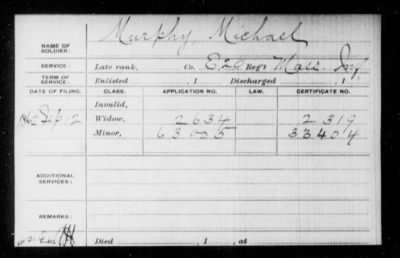 NAME OF SOLDIER: Murphy, Michael
SERVICE: Late rank, Co. E 20 Reg't Mass. Inf.
TERM OF SERVICE: Enlisted , 1 Discharged , 1
DATE OF FILING. CLASS. APPLICATION NO. LAW. CERTIFICATE NO.
Invalid,
1862 Sep 12 Widow, 2634 2319
Minor, 63035 33404
ADDITIONAL SERVICES:
REMARKS:
Died , 1 , at